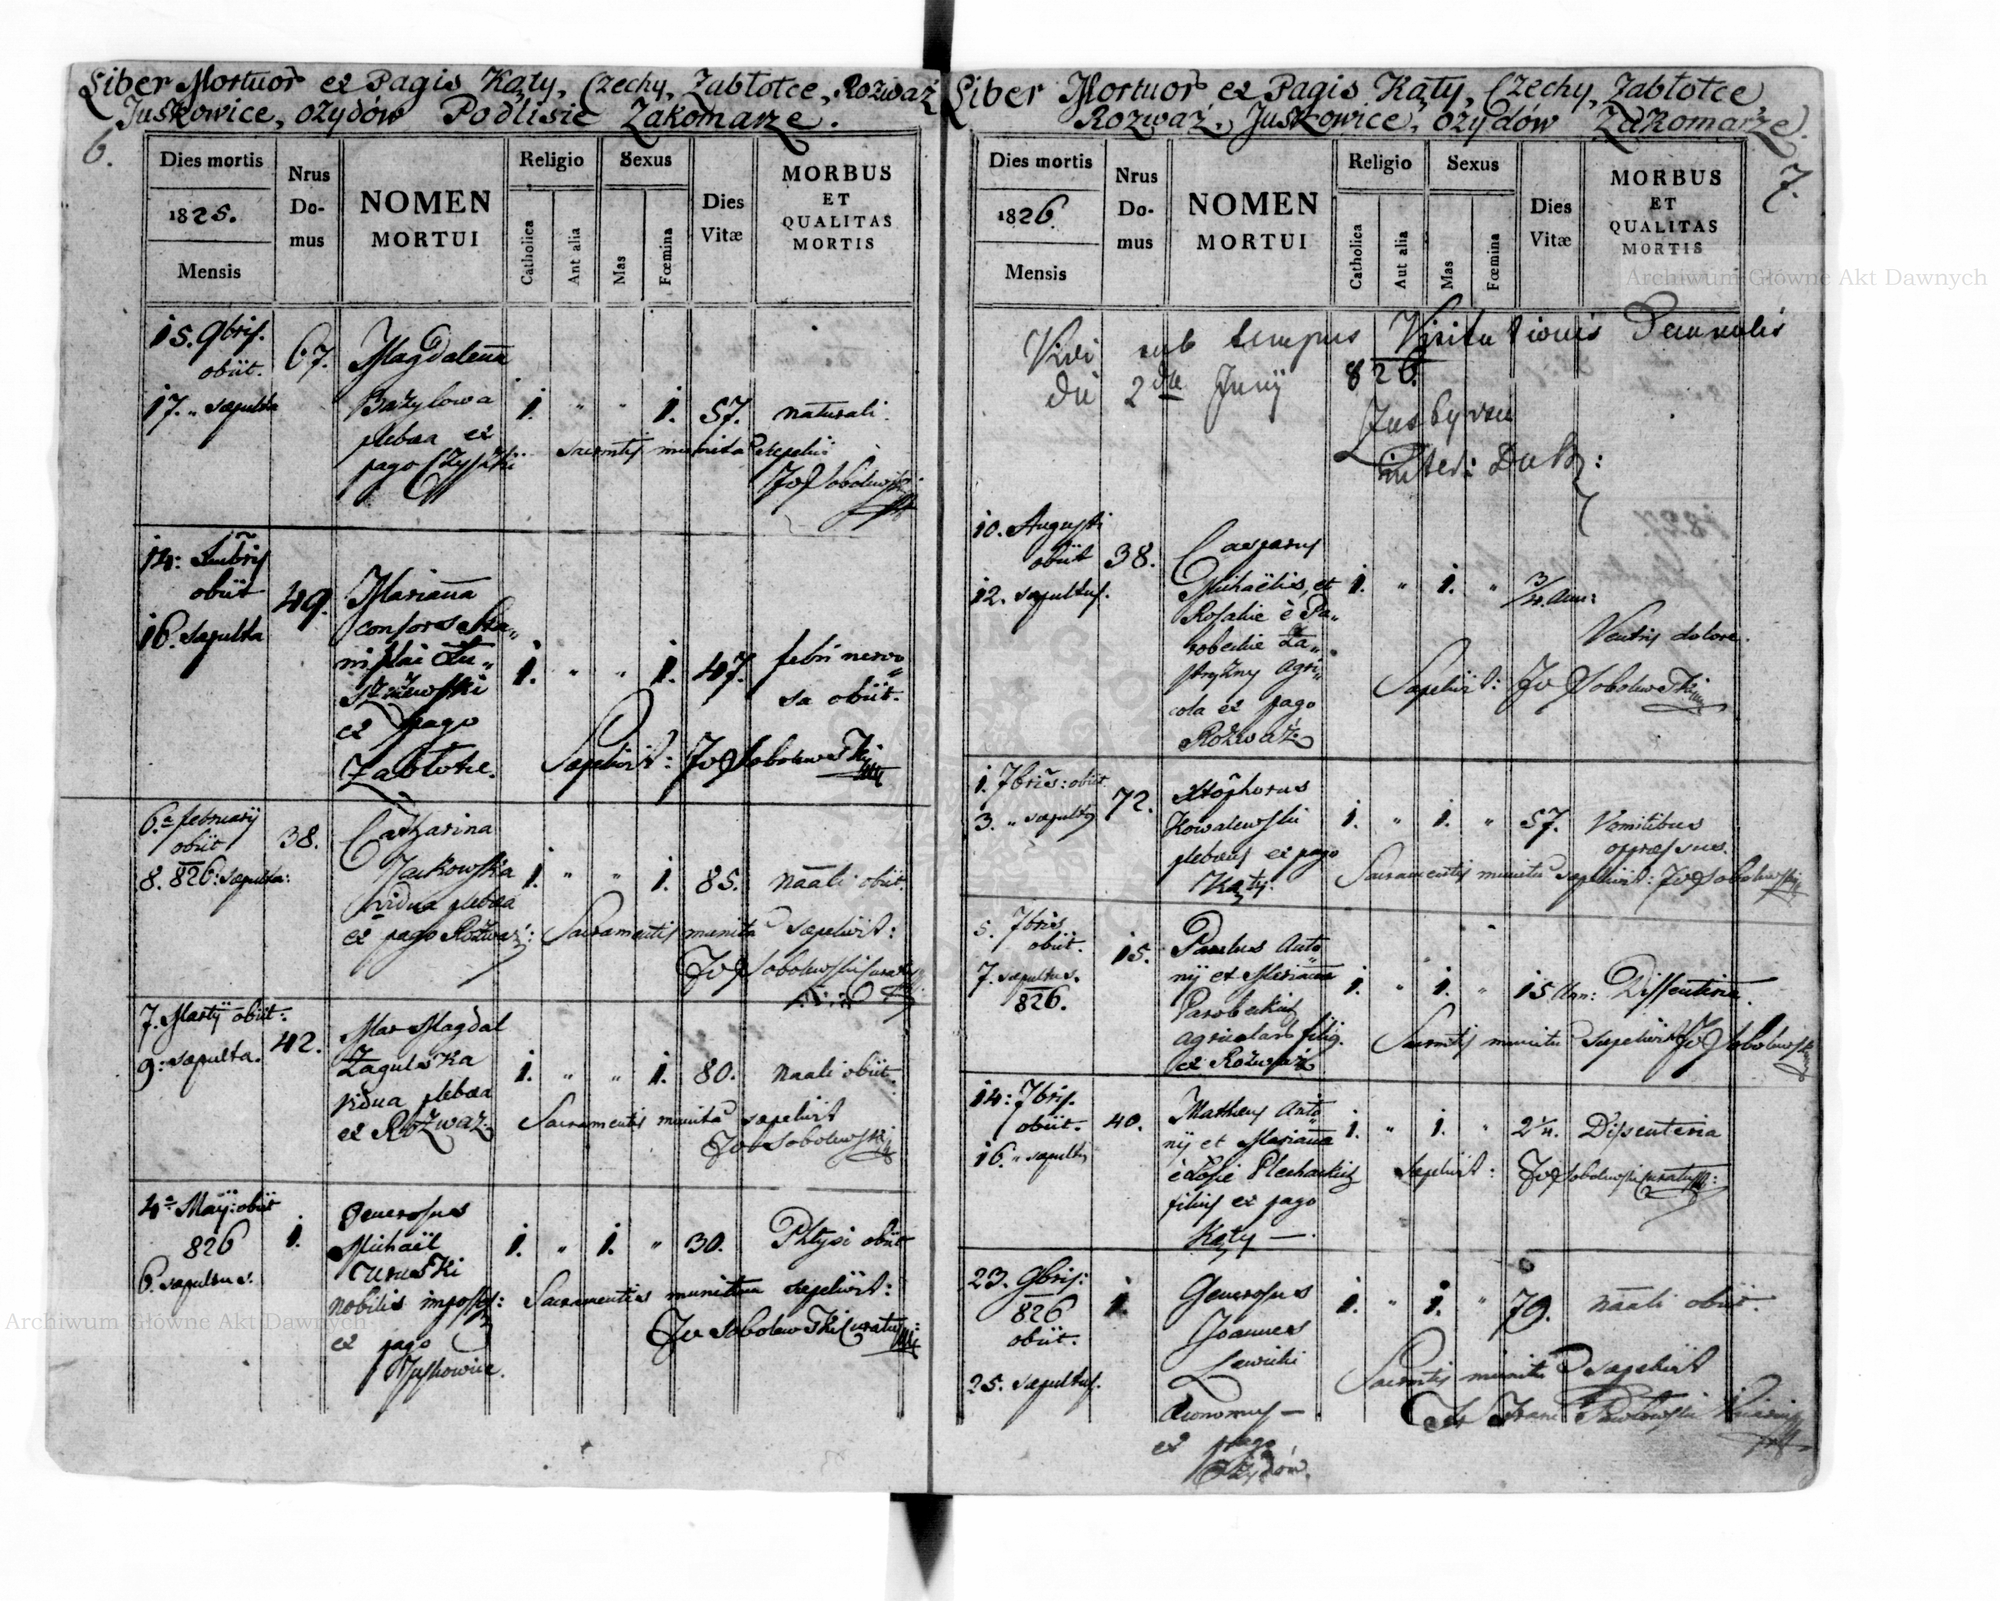 Liber Mortuor ex Pagis Kąty, Czechy, Zabłotce, Rozważ
Juskowice, Ożydów Podlisie Zakomarze.
6.
Dies mortis
1825.
Mensis
Nrus
Do-
mus
NOMEN
MORTUI
Religio
Catholica
Aut alia
Sexus
Mas
Fœmina
Dies
Vitæ
MORBUS
ET
QUALITAS
MORTIS
15. 9bris.
obiit.
17. " sepulta
67.
Magdalena
Bazylowa
plebaa ex
pago
1. " " 1. 57. naturali.
sacrmtis munita sepelivi
Jo Sobolewski
14:
obiit
16. sepulta
49.
Marianna
consors Sta„
nislai
ex pago
Zabłotce.
1. " " 1. 47. febri nervo„
sa obiit.
Sepelivit: Jo Sobolewski
6.a februarij
obiit
8. 826: sepulta:
38.
Catharina
vidua plebaa
ex pago Rozważ:
1. " " 1. 85. naali obiit.
Sacramentis munita sepelivit:
Jo Sobolewski Curatus
7. Martij obiit:
9: sepulta.
42.
Mar Magdal
Zagulska
vidua plebaa
ex Rozważ.
1. " " 1. 80. naali obiit.
Sacramentis munita sepelivit
Jo Sobolewski
4a Maij: obiit
826
6. sepultus.
1.
Generosus
Michaël
nobilis
ex pago
Juskowice.
1. " 1. " 30. Phtysi obiit
Sacramentis munitum sepelivit:
Jo Sobolewski Curatus
Liber Mortuor ex Pagis Kąty, Czechy, Zabłotce
Rozważ, Juskowice, Ożydów Zakomarze.
7.
Dies mortis
1826.
Mensis
Nrus
Do-
mus
NOMEN
MORTUI
Religio
Catholica
Aut alia
Sexus
Mas
Fœmina
Dies
Vitæ
MORBUS
ET
QUALITAS
MORTIS
Vidi sub tempus Visitationis Decanalis
die 2da Junij 826.
10. Augusti
obiit
12. sepultus.
38.
Casparus
Michaëlis, et
Rosaliæ è Pa„
agri„
cola ex pago
Rozważ
1. " 1. " 3/4. ann:
Ventris dolore.
Sepelivit: Jo Sobolewski
1. 7bris: obiit
3. " sepultus
72.
Xtophorus
Kowalewski
plebeus ex pago
Kąty.
1. " 1. " 57. Vomitibus
oppressus.
Sacramentis munitu sepelivit: Jo Sobolewski
5. 7bris
obiit.
7. sepultus.
826.
15.
Paulus Anto
nij et Marianna
agricolar filius
ex Rozważ
1. " 1. " 15 Ann: Dissenteria.
Sacrmtis munitu sepelivit Jo Sobolewski
14: 7bris.
obiit.
16. " sepultus
40.
Matheus Anto
nij et Marianna
filius ex pago
Kąty —.
1. " 1. " 2 1/4. Dissenteria
sepelivit: Jo Sobolewski Curatus
23. 9bris:
826
obiit.
25. sepultus.
1.
Generosus
Joannes
Lewicki
Œconomus —
ex pago
Ożydów.
1. " 1. " 79. naali obiit.
Sacrmtis munitu sepelivit
Pawłowski
Archiwum Główne Akt Dawnych
Archiwum Główne Akt Dawnych